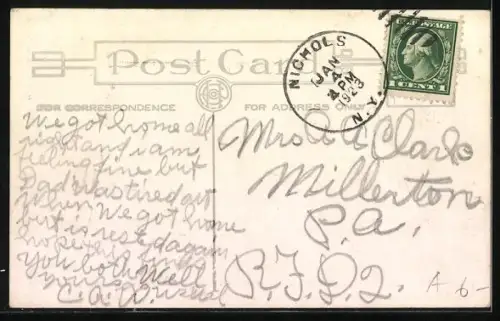 Post Card
FOR CORRESPONDENCE
FOR ADDRESS ONLY
NICHOLS N.Y.
JAN
4 PM
1923
1 CENT 1
We got home all
right and i am
feeling fine but
Dad was tired out
when we got home
but is rested again
hope this finds
you both Well
yours
C. A. W.
Mrs A A Clark
Millerton
P.a.
R.F.D.2.
A 6-